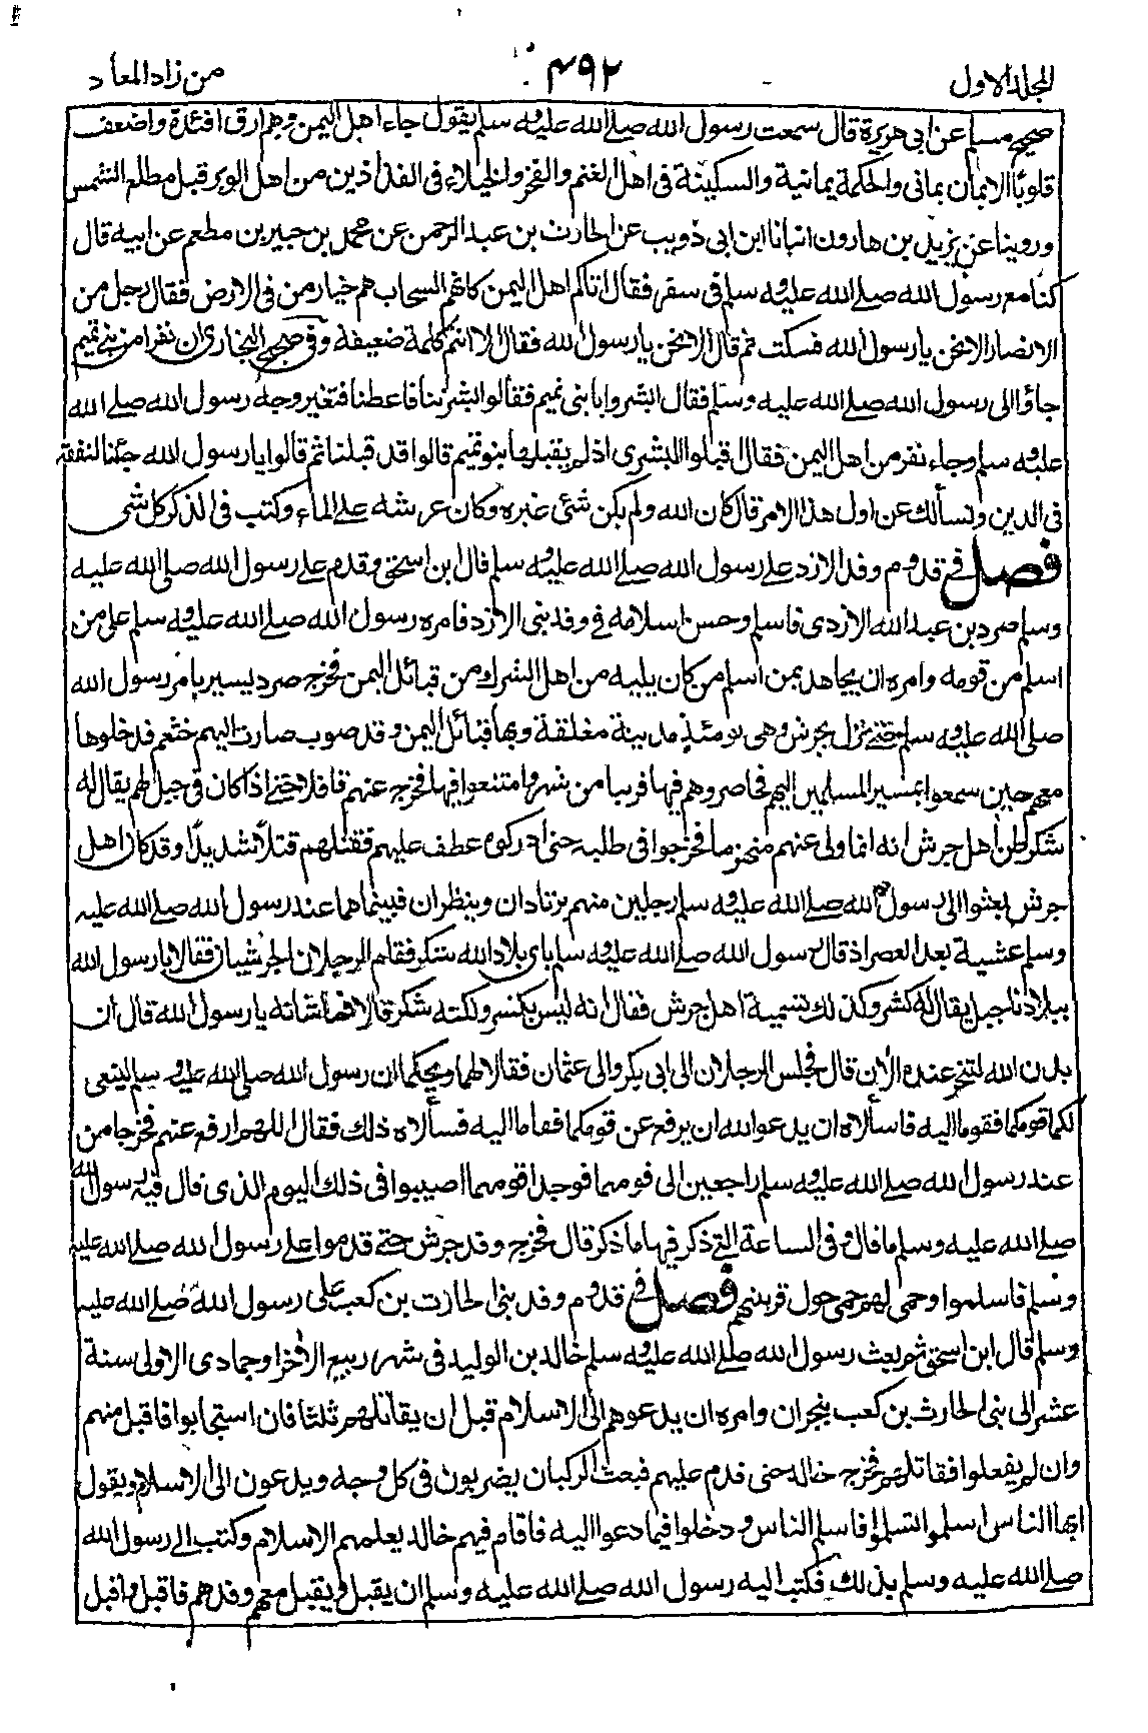 المجلد الاول ٤٩٢ من زاد المعاد
صحيح مسلم عن ابى هريرة قال سمعت رسول الله صلے الله عليه وسلم يقول جاء اهل اليمن وهم ارق افئدة واضعف
قلوبًا الايمان يمانى والحكمة يمانية والسكينة فى اهل الغنم والفخر والخيلاء فى الفدادين من اهل الوبر قبل مطلع الشمس
وروينا عن يزيد بن هارون انبانا ابن ابى ذويب عن الحارث بن عبد الرحمن عن محمد بن جبير بن مطعم عن ابيه قال
كنا مع رسول الله صلے الله عليه وسلم فى سفر فقال اتاكم اهل اليمن كانهم السحاب هم خيار من فى الارض فقال رجل من
الانصار الا نحن يا رسول الله فسكت ثم قال الا نحن يا رسول الله فقال الا انتم كلمة ضعيفة وفى صحيح البخارى ان نفرا من بنى تميم
جاؤا الى رسول الله صلے الله عليه وسلم فقال ابشروا يا بنى تميم فقالوا بشرتنا فاعطنا فتغير وجه رسول الله صلے الله
عليه وسلم وجاء نفر من اهل اليمن فقال اقبلوا البشرى اذ لم يقبلها بنو تميم قالوا قد قبلنا ثم قالوا يا رسول الله جئنا لنتفقه
فى الدين ونسألك عن اول هذا الامر قال كان الله ولم يكن شئ غيره وكان عرشه على الماء وكتب فى الذكر كل شى
فصل فى قدوم وفد الازد على رسول الله صلے الله عليه وسلم قال ابن اسحق وقدم على رسول الله صلى الله عليه
وسلم صرد بن عبد الله الازدى فاسلم وحسن اسلامه فى وفد بنى الازد فامره رسول الله صلے الله عليه وسلم على من
اسلم من قومه وامره ان يجاهد بمن اسلم من كان يليه من اهل الشرك من قبائل اليمن فخرج صرد يسير بامر رسول الله
صلى الله عليه وسلم حتى نزل بجرش وهى يومئذ مدينة مغلقة وبها قبائل اليمن وقد صوب صارت اليهم خثعم فدخلوها
معهم حين سمعوا بمسير المسلمين اليهم فحاصروهم فيها قريبا من شهر وامتنعوا فيها فخرج عنهم قافلا حتى اذا كان فى جبل لهم يقال له
شكر ظن اهل جرش انه انما ولى عنهم منهزما فخرجوا فى طلبه حتى ادركوه عطف عليهم فقتلهم قتلاً شديدًا وقد كان اهل
جرش بعثوا الى رسول الله صلے الله عليه وسلم رجلين منهم يرتادان وينظران فبينما هما عند رسول الله صلے الله عليه
وسلم عشية بعد العصر اذ قال رسول الله صلے الله عليه وسلم باى بلاد الله شكر فقام الرجلان الجرشيان فقالا يا رسول الله
ببلادنا جبل يقال له كشر وكذلك تسمية اهل جرش فقال انه ليس بكشر ولكنه شكر قالا فما شانه يا رسول الله قال ان
بدن الله لتنحر عنده الأن قال فجلس الرجلان الى ابى بكر والى عثمان فقالا لهما ويحكما ان رسول الله صلى الله عليه وسلم لينعى
لكما قومكما فقوما اليه فاسألاه ان يدعو الله ان يرفع عن قومكما فقاما اليه فسألاه ذلك فقال اللهم ارفع عنهم فخرجا من
عند رسول الله صلے الله عليه وسلم راجعين الى قومهما فوجدا قومهما اصيبوا فى ذلك اليوم الذى قال فيه رسول الله
صلے الله عليه وسلم ما قال وفى الساعة التى ذكر فيها ما ذكر قال فخرج وفد جرش حتى قدموا على رسول الله صلے الله عليه
وسلم فاسلموا وحمى لهم حمى حول قريتهم فصل فى قدوم وفد بنى الحارث بن كعب على رسول الله صلے الله عليه
وسلم قال ابن اسحق ثم بعث رسول الله صلے الله عليه وسلم خالد بن الوليد فى شهر ربيع الأخر او جمادى الاولى سنة
عشر الى بنى الحارث بن كعب بنجران وامره ان يدعوهم الى الاسلام قبل ان يقاتلهم ثلثا فان استجابوا فاقبل منهم
وان لم يفعلوا فقاتلهم فخرج خالد حتى قدم عليهم فبعث الركبان يضربون فى كل وجه ويدعون الى الاسلام ويقول
ايها الناس اسلموا تسلموا فاسلم الناس ودخلوا فيما دعوا اليه فاقام فيهم خالد يعلمهم الاسلام وكتب الى رسول الله
صلے الله عليه وسلم بذلك فكتب اليه رسول الله صلے الله عليه وسلم ان يقبل ويقبل معهم وفدهم فاقبل واقبل